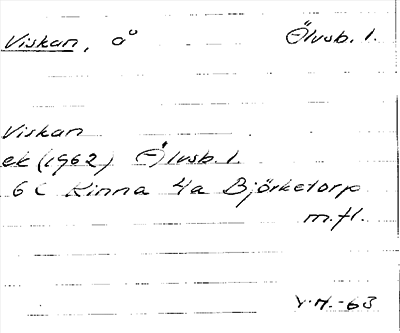 Viskan, å Älvsb. l.
Viskan
ek (1962) Älvsb. l.
6C Kinna 4a Björketorp
m.fl.
V.H.-63